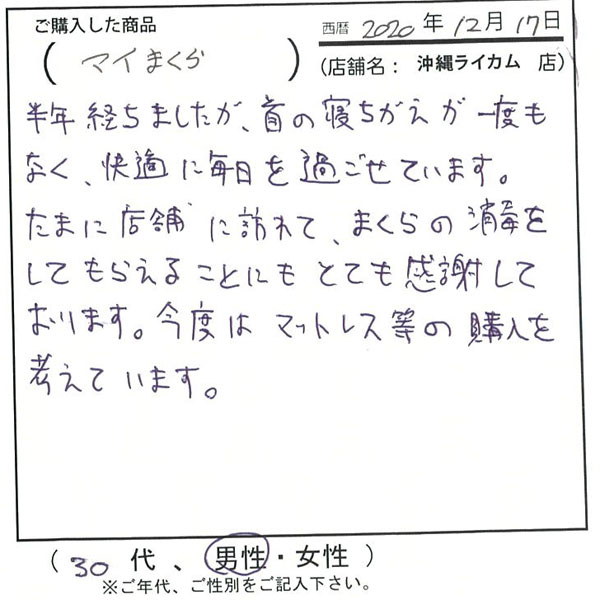 ご購入した商品
西暦 2020年12月17日
(マイまくら)
(店舗名: 沖縄ライカム 店)
半年経ちましたが、首の寝ちがえが一度も
なく、快適に毎日を過ごせています。
たまに店舗に訪れて、まくらの消毒を
してもらえることにもとても感謝して
おります。今度はマットレス等の購入を
考えています。
(30代、男性・女性)
※ご年代、ご性別をご記入下さい。